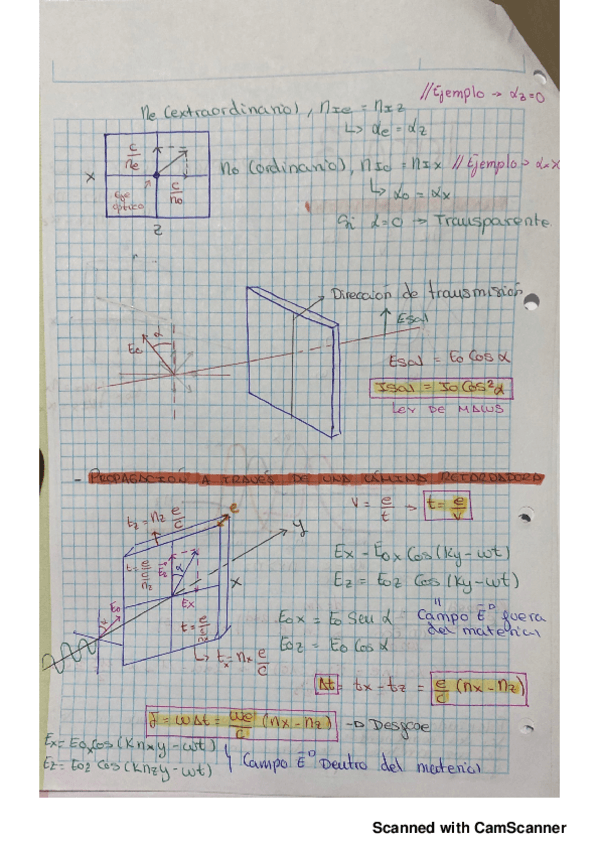 //Ejemplo → αz=0
ne (extraordinario), nIe = nIz
↳ αe = αz
c/ne
x
c/no
eje óptico
z
no (ordinario), nIo = nIx //Ejemplo → α=x
↳ αo = αx
Si α=0 → Transparente
Dirección de transmisión
Esal
α
Eo
Esal = Eo Cos α
Isal = Io Cos²α
LEY DE MALUS
- PROPAGACIÓN A TRAVÉS DE UNA LÁMINA RETARDADORA
V = e/t → t = e/v
tz = nz e/c
e
y
x
α
Ex
Eo
tx = nx e/c
Ex = Eox Cos (ky - wt)
Ez = Eoz Cos (ky - wt)
Eox = Eo Sen α
Eoz = Eo Cos α
Campo E fuera del material
Δt = tx - tz = e/c (nx - nz)
δ = wΔt = we/c (nx - nz) → Desfase
Ex = Eox Cos (k nx y - wt)
Ez = Eoz Cos (k nz y - wt)
Campo E Dentro del material
Scanned with CamScanner